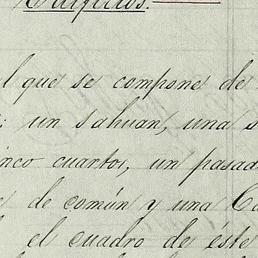 Edificios.
l que se compone de
un sahuan, una s
inco cuartos, un pasad
e de común y una Ca
el cuadro de éste